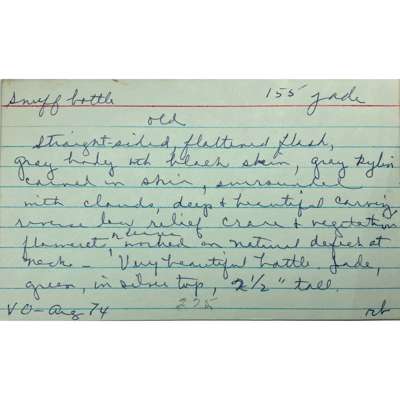 Snuff bottle 155 Jade
old
straight-sided, flattened flask,
gray body with black skin, gray
carved in skin, surrounded
with clouds, deep & beautiful carving
reverse low relief crane & vegetation
worked on natural defect at
neck - Very beautiful bottle Jade,
green, in silver top, 2 1/2" tall.
VO - Aug 74 225 rb